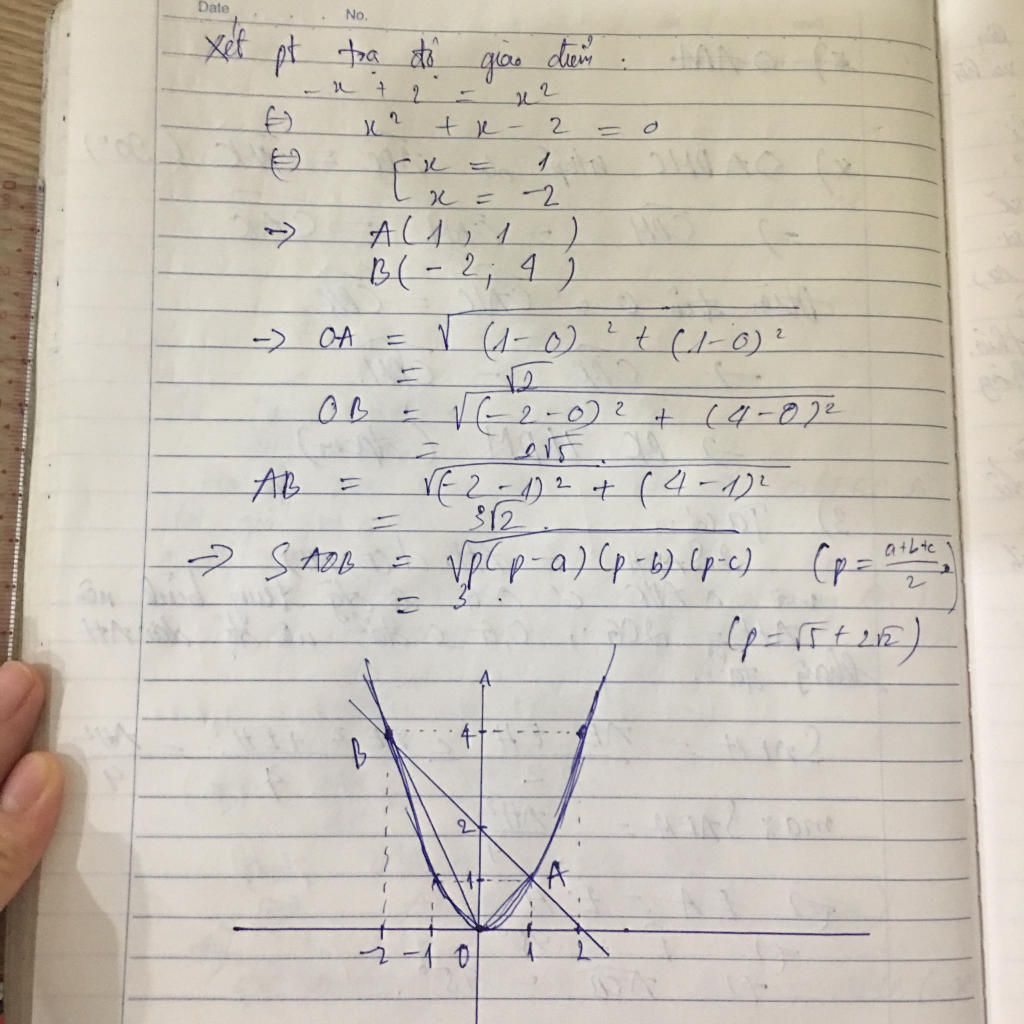 Date . . . . No.
Xét pt toạ độ giao điểm :
-x + 2 = x²
(=) x² + x - 2 = 0
(=) [ x = 1
x = -2
-> A( 1 ; 1 )
B( - 2 ; 4 )
-> OA = √(1-0)² + (1-0)²
= √2
OB = √(-2-0)² + (4-0)²
= 2√5.
AB = √(-2-1)² + (4-1)²
= 3√2.
-> SAOB = √p(p-a)(p-b)(p-c) (p = a+b+c/2)
= 3.
(p = √5 + 2√2)
B 4
2
1 A
-2 -1 0 1 2